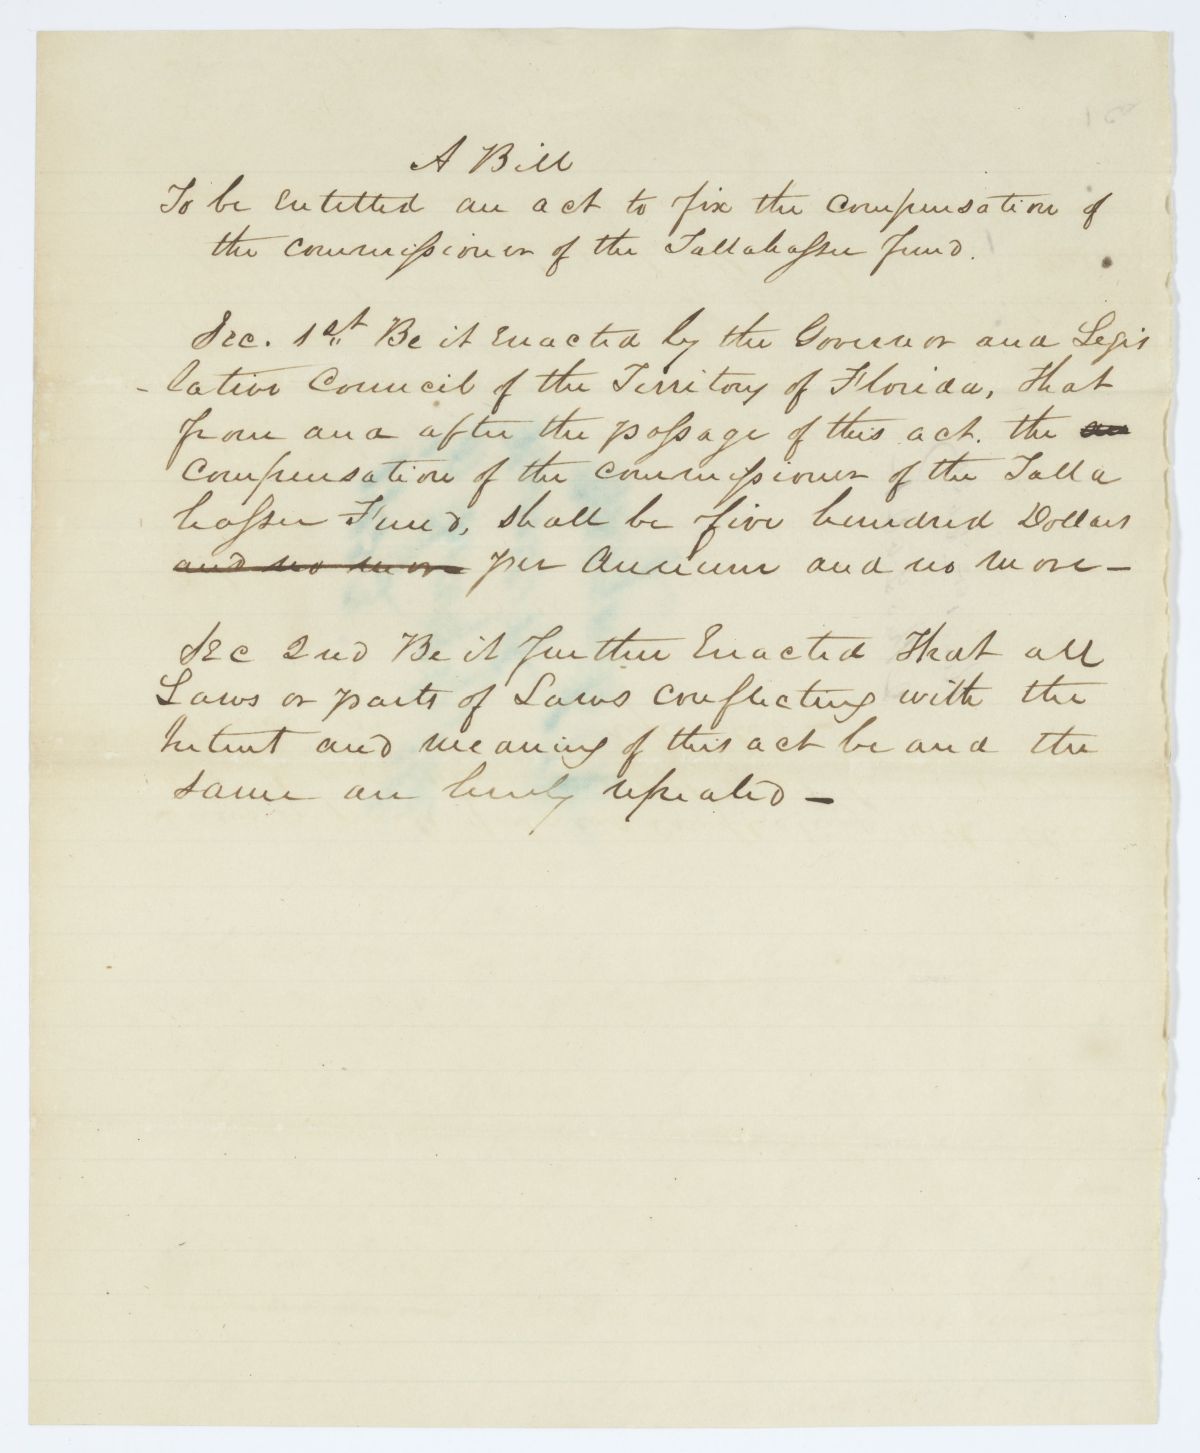 A Bill
To be Entitled an act to fix the Compensation of
the Commissioner of the Tallahassee fund.
Sec. 1st Be it Enacted by the Governor and Legis
-lative Council of the Territory of Florida, that
from and after the passage of this act. the an
Compensation of the Commissioner of the Talla
hassee Fund, shall be five hundred Dollars
and no more per Annum and no more -
Sec 2nd Be it further Enacted That all
Laws or parts of Laws conflicting with the
Intent and meaning of this act be and the
same are hereby repealed -